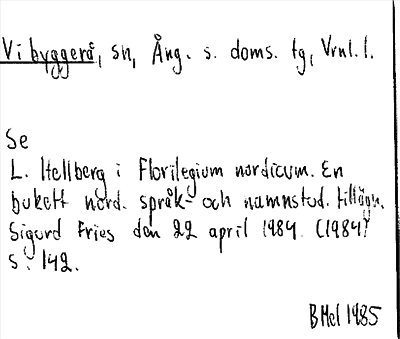 Vibyggerå, sn, Ång. s. doms. tg, Vrnl. l.
Se
L. Hellberg i Florilegium nordicum. En
bukett nord. språk- och namnstud. tillägn.
Sigurd Fries den 22 april 1984. (1984)
s. 142.
BMel 1985